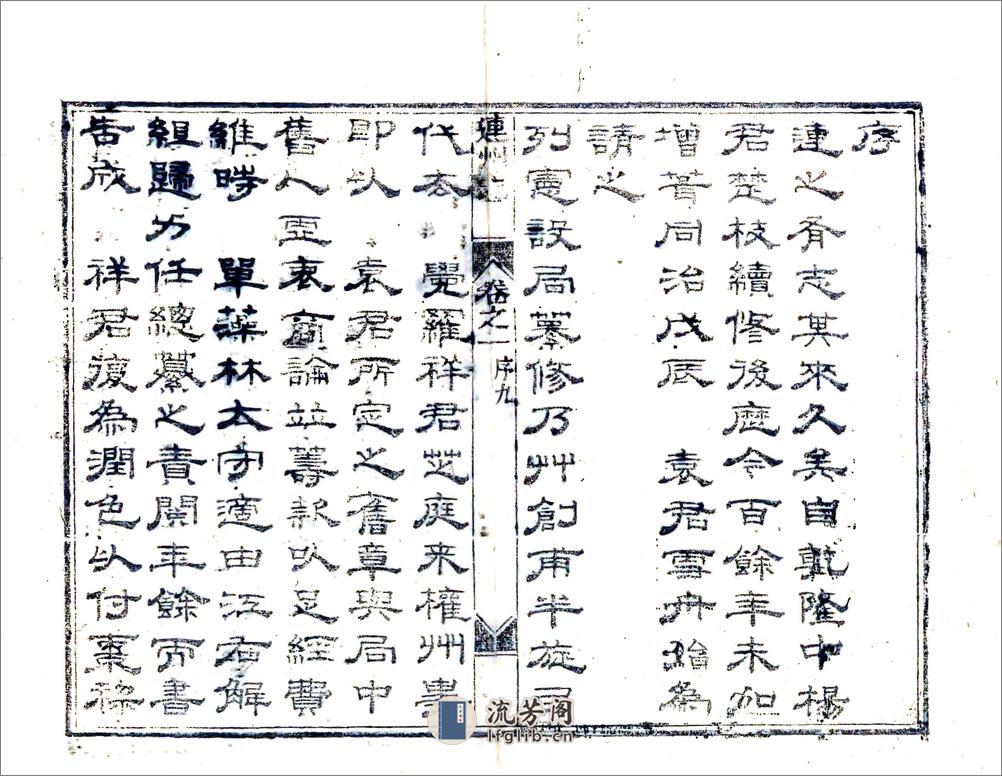 序
連之有志其來久矣自乾隆中楊
君楚枝續修後歷今百餘年未加
增葺同治戊辰 袁君雪舟始為
請之
列憲設局纂修乃艸創甫半旋
連州志 卷之一 序九
代去 覺羅祥君芝庭来權州事
即以 袁君所定之舊章與局中
舊人亟衷商論並籌款以足經費
維時 單藻林太守適由江右解
組歸乃任總纂之責閱年餘而書
告成 祥君復為潤色以付棗
流芳阁
lfglib.cn